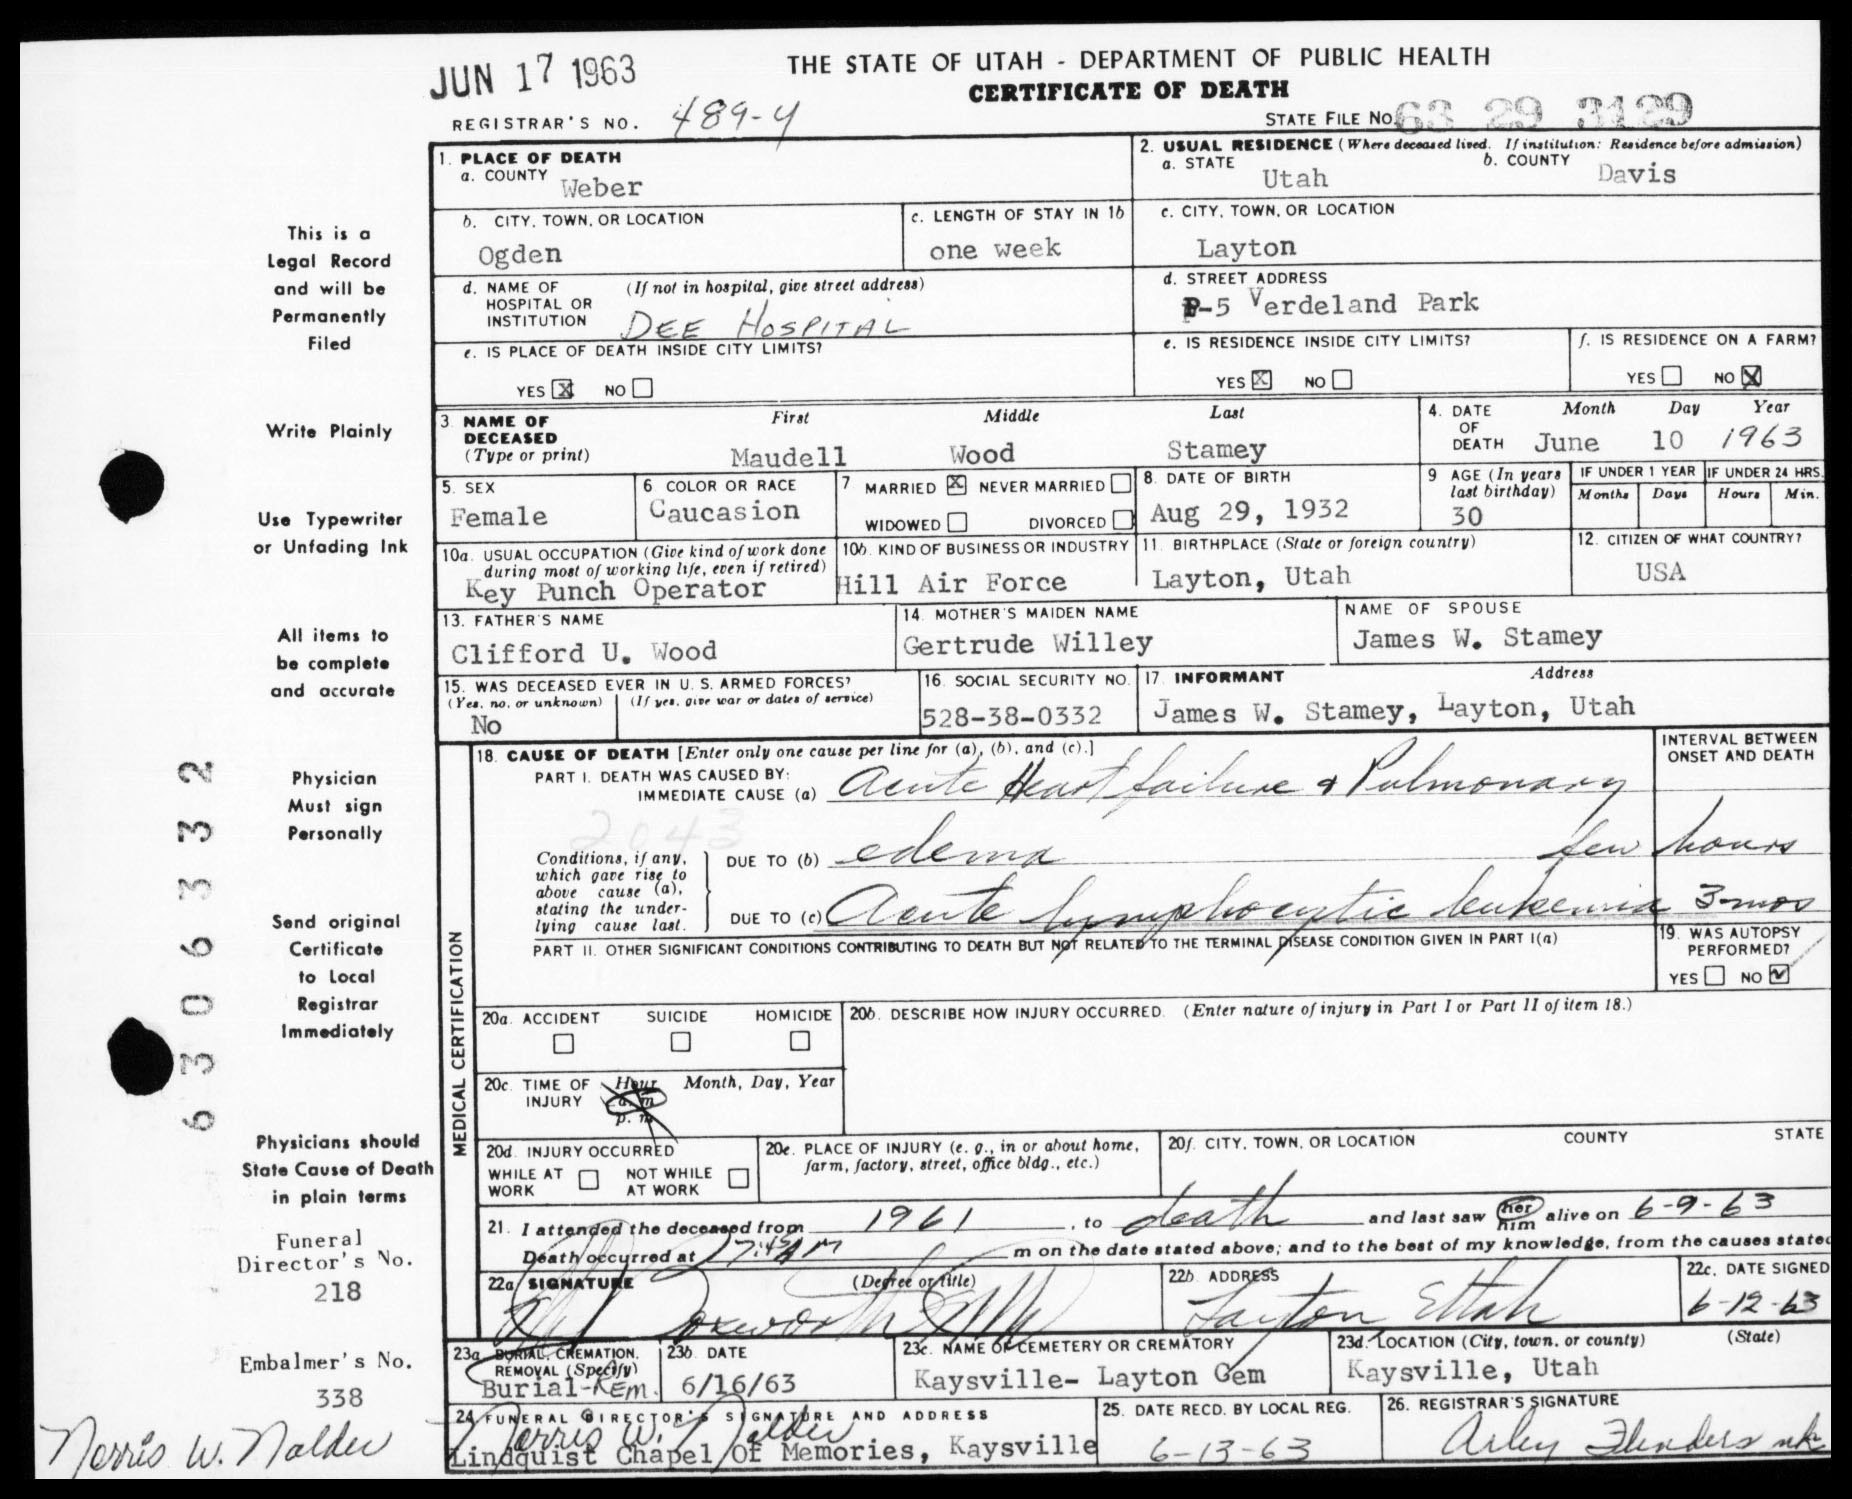 JUN 17 1963
THE STATE OF UTAH - DEPARTMENT OF PUBLIC HEALTH
CERTIFICATE OF DEATH
REGISTRAR'S NO. 489-4
STATE FILE NO. 63 29 3129
This is a
Legal Record
and will be
Permanently
Filed
Write Plainly
Use Typewriter
or Unfading Ink
All items to
be complete
and accurate
Physician
Must sign
Personally
Send original
Certificate
to Local
Registrar
Immediately
Physicians should
State Cause of Death
in plain terms
Funeral
Director's No.
218
Embalmer's No.
338
Norris W. Nalder
6306332
1. PLACE OF DEATH
a. COUNTY Weber
2. USUAL RESIDENCE (Where deceased lived. If institution: Residence before admission)
a. STATE Utah b. COUNTY Davis
b. CITY, TOWN, OR LOCATION
Ogden
c. LENGTH OF STAY IN 1b
one week
c. CITY, TOWN, OR LOCATION
Layton
d. NAME OF HOSPITAL OR INSTITUTION (If not in hospital, give street address)
DEE HOSPITAL
d. STREET ADDRESS
-5 Verdeland Park
e. IS PLACE OF DEATH INSIDE CITY LIMITS?
YES X NO
e. IS RESIDENCE INSIDE CITY LIMITS?
YES X NO
f. IS RESIDENCE ON A FARM?
YES NO X
3. NAME OF DECEASED (Type or print)
First Middle Last
Maudell Wood Stamey
4. DATE OF DEATH
Month Day Year
June 10 1963
5. SEX
Female
6 COLOR OR RACE
Caucasion
7 MARRIED X NEVER MARRIED
WIDOWED DIVORCED
8. DATE OF BIRTH
Aug 29, 1932
9 AGE (In years last birthday)
30
IF UNDER 1 YEAR
Months Days
IF UNDER 24 HRS.
Hours Min.
10a. USUAL OCCUPATION (Give kind of work done during most of working life, even if retired)
Key Punch Operator
10b. KIND OF BUSINESS OR INDUSTRY
Hill Air Force
11. BIRTHPLACE (State or foreign country)
Layton, Utah
12. CITIZEN OF WHAT COUNTRY?
USA
13. FATHER'S NAME
Clifford U. Wood
14. MOTHER'S MAIDEN NAME
Gertrude Willey
NAME OF SPOUSE
James W. Stamey
15. WAS DECEASED EVER IN U. S. ARMED FORCES?
(Yes, no, or unknown) (If yes, give war or dates of service)
No
16. SOCIAL SECURITY NO.
528-38-0332
17. INFORMANT Address
James W. Stamey, Layton, Utah
MEDICAL CERTIFICATION
18. CAUSE OF DEATH [Enter only one cause per line for (a), (b), and (c).]
INTERVAL BETWEEN ONSET AND DEATH
PART I. DEATH WAS CAUSED BY:
IMMEDIATE CAUSE (a) Acute Heart failure & Pulmonary
2043
Conditions, if any, which gave rise to above cause (a), stating the underlying cause last.
DUE TO (b) edema few hours
DUE TO (c) Acute lymphocytic leukemia 3-mos
PART II. OTHER SIGNIFICANT CONDITIONS CONTRIBUTING TO DEATH BUT NOT RELATED TO THE TERMINAL DISEASE CONDITION GIVEN IN PART I(a)
19. WAS AUTOPSY PERFORMED?
YES NO ✓
20a. ACCIDENT SUICIDE HOMICIDE
20b. DESCRIBE HOW INJURY OCCURRED. (Enter nature of injury in Part I or Part II of item 18.)
20c. TIME OF INJURY Hour a. m. p. m. Month, Day, Year
20d. INJURY OCCURRED
WHILE AT WORK NOT WHILE AT WORK
20e. PLACE OF INJURY (e. g., in or about home, farm, factory, street, office bldg., etc.)
20f. CITY, TOWN, OR LOCATION COUNTY STATE
21. I attended the deceased from 1961, to death and last saw her him alive on 6-9-63
Death occurred at 7:45 AM m on the date stated above; and to the best of my knowledge, from the causes stated
22a SIGNATURE (Degree or title)
22b. ADDRESS
Layton Utah
22c. DATE SIGNED
6-12-63
23a BURIAL, CREMATION, REMOVAL (Specify)
Burial-Rem.
23b. DATE
6/16/63
23c. NAME OF CEMETERY OR CREMATORY
Kaysville- Layton Cem
23d. LOCATION (City, town, or county) (State)
Kaysville, Utah
24 FUNERAL DIRECTOR'S SIGNATURE AND ADDRESS
Norris W. Nalder
Lindquist Chapel Of Memories, Kaysville
25. DATE RECD. BY LOCAL REG.
6-13-63
26. REGISTRAR'S SIGNATURE
Arley Flinders